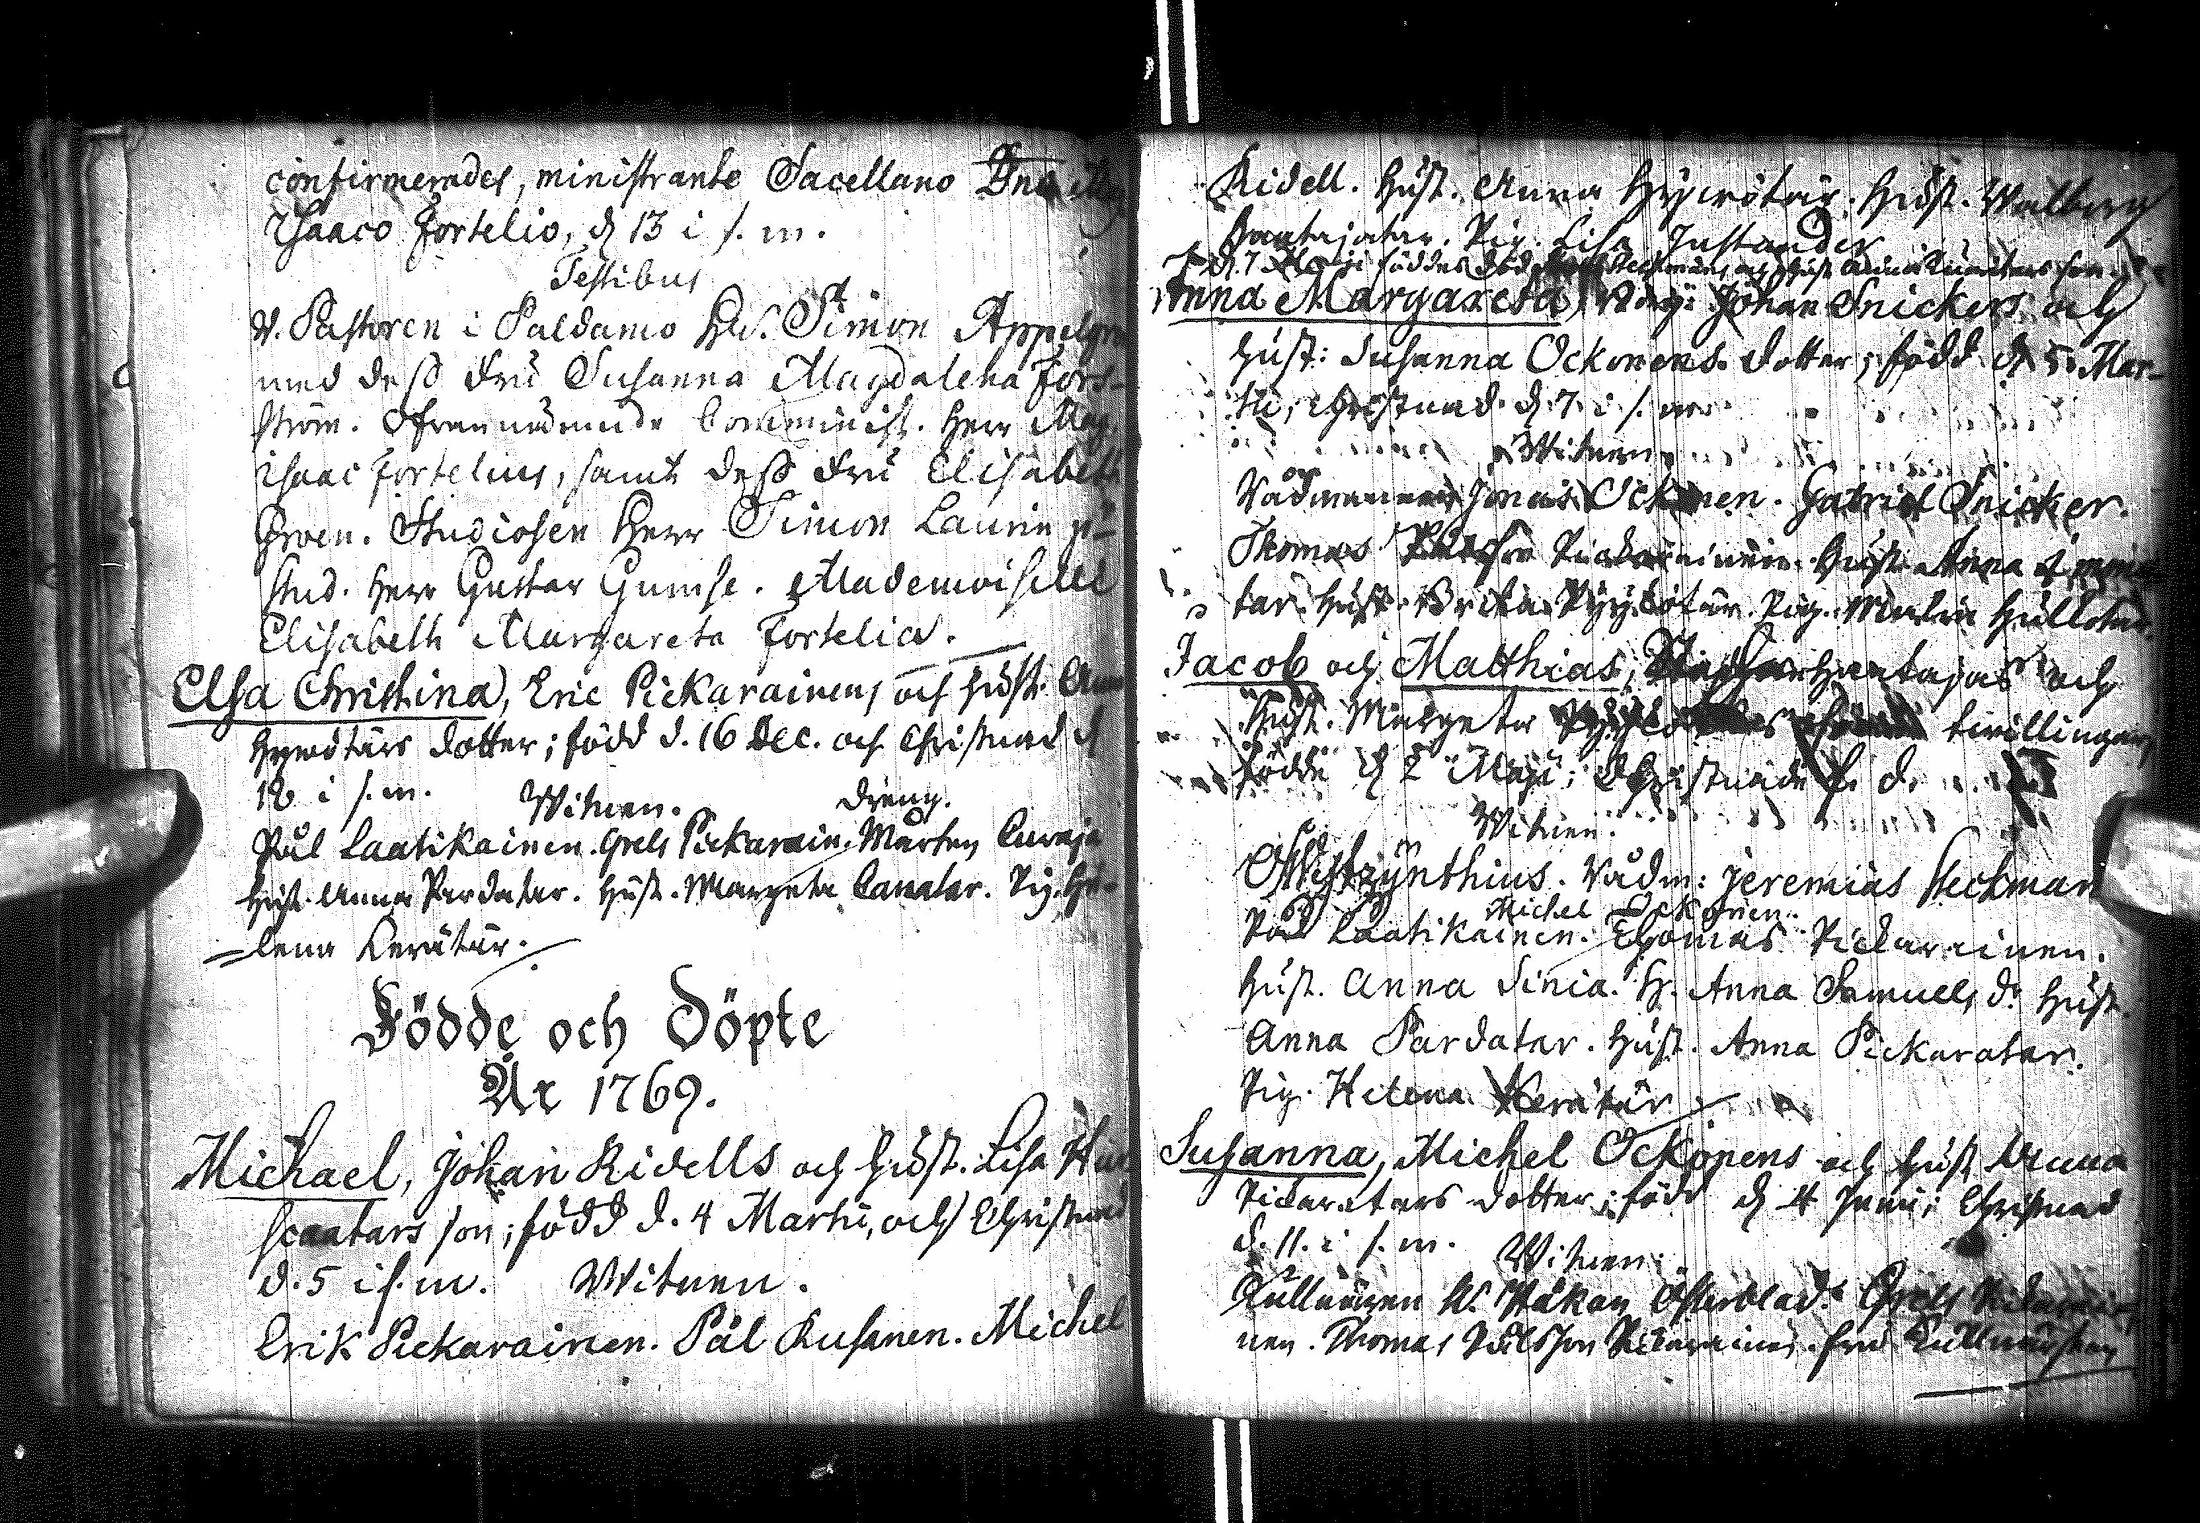 confirmerades, ministrante Sacellano Dno
Isaaco Fortelio, d 13 i s. m.
Testibus
V. Pastoren i Paldamo Hr. Simon Appelgr
med dess Fru Susanna Magdalena Fors-
ström. Ofvannämnde Comminist. Herr Mag
Isaac Fortelius, samt dess Fru Elisabeth
Proen. Studiosen Herr Simon Laurin
Stud. Herr Gustav Gumse. Mademoiselle
Elisabeth Margareta Fortelia.
Elsa Christina, Eric Pickarainens och Hust. Ann
Hyvötärs dotter; född d. 16 Dec. och Christnad d
18 i s. m. Witnen. Dreng.
Pål Laatikainen. Grels Pickarain. Mårten Curaja
Hust. Anna Pardatar. Hust. Margeta Canatar. Pig. He-
lena Kerätär.
Födde och Döpte
År 1769.
Michael, Johan Ridells och Hust. Lisa
scaatars son; född d. 4 Martii, och Christnad
d. 5 i s. m. Witnen.
Erik Pickarainen. Pål Kusanen. Michel
Ridell. Hust. Anna Hyvötär. Hust. Walborg
Haatajatar. Pig. Lisa Justander
d. 7 Maji föddes död Heckmans och Hust Anna
Anna Margareta, Johan Snickers och
Hust: Susanna Ockonens dotter; född d 5. Mar-
tii, Christnad d 7 i s. m.
Witnen
Vådmannen Jonas Ockonen. Gabriel Snicker.
Thomas Pålsson Pickarainen. Hust. Anna
tar. Hust. Brita Pyykötär. Pig. Malin Hullotar.
Jacob och Matthias, Haatajas och
Hust. Margeta tvillingar,
födde d 2 Maji; Christnade s. d.
Witnen.
Zynthius. Vådm: Jeremias Heckman
Michel Ockonen.
Pål Laatikainen. Thomas Pickarainen.
Hust. Anna Sinia. H. Anna Samuels d: Hust
Anna Pardatar. Hust. Anna Pickaratar.
Pig. Helena Kerätär
Susanna, Michel Ockonens och Hust Anna
Pickaratars dotter; född d 4 Junii; Christnad
d. 11. i s. m. Witnen:
Tullnären H. Håkan Österblad. Grels Pickarai
nen. Thomas Pålsson Pickarainen. Fru Tullnärskan